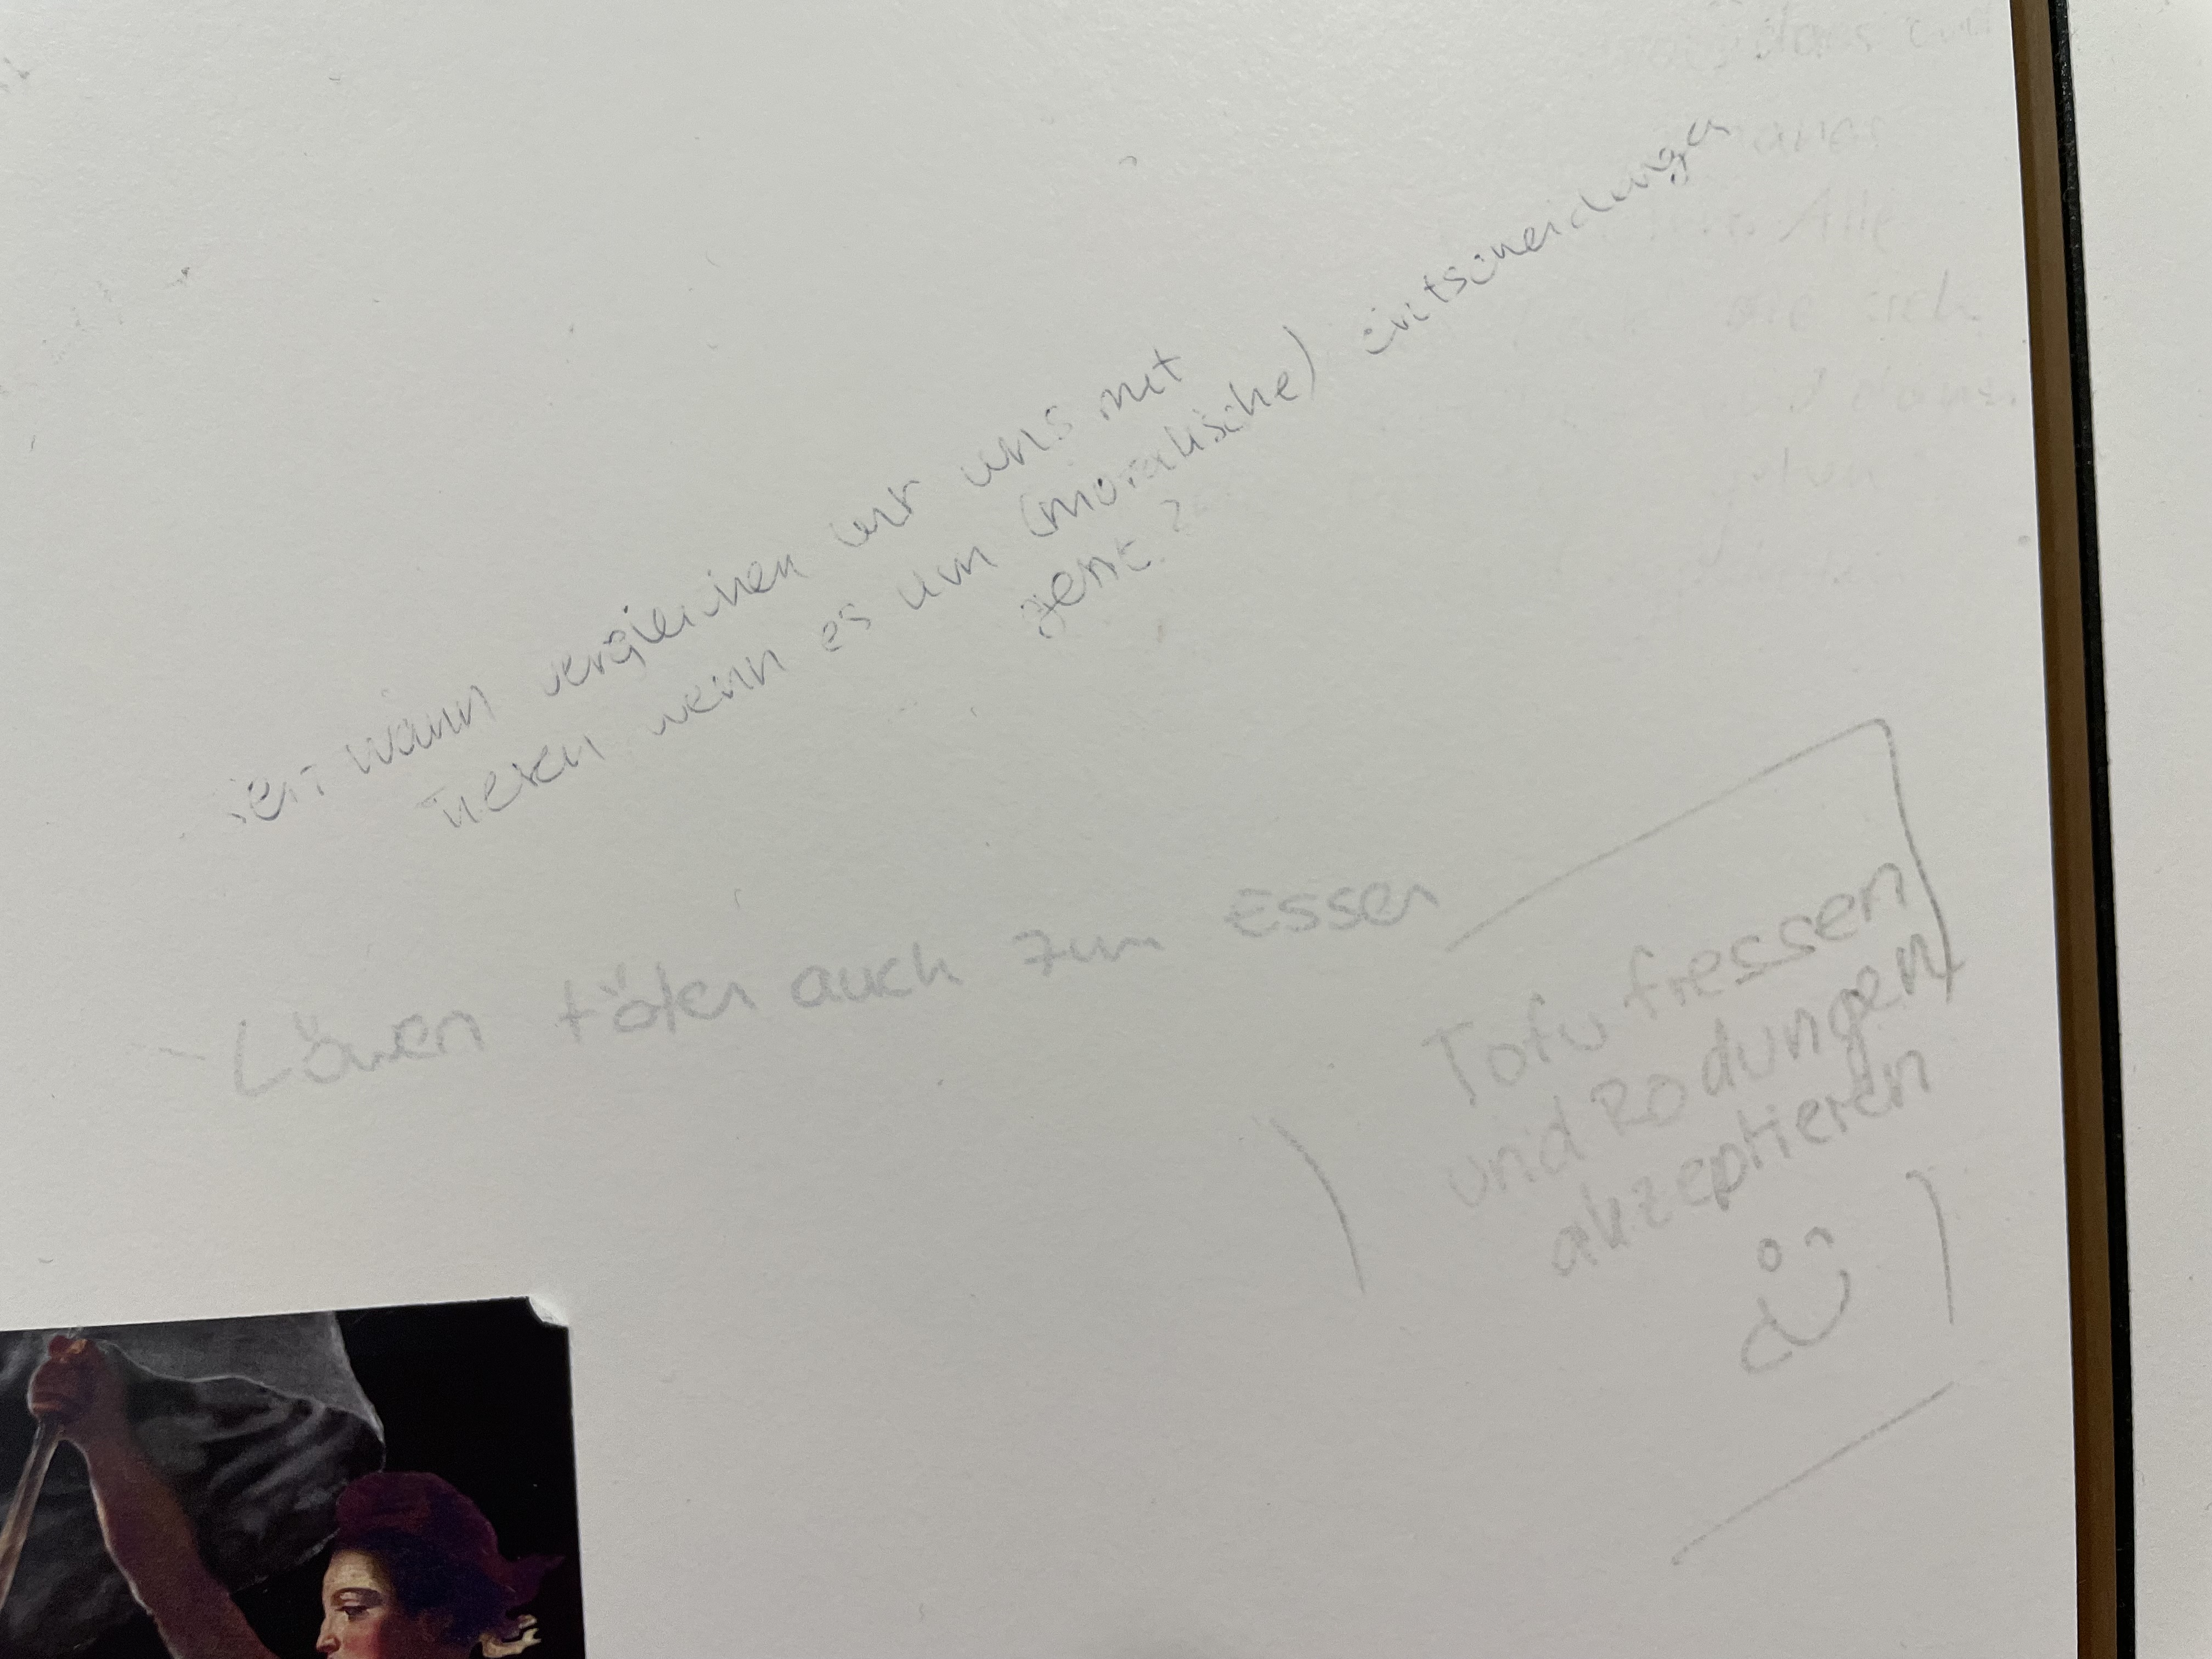 Seit wann vergleichen wir uns mit
Tieren wenn es um (moralische) Entscheidungen
geht?
Löwen töten auch zum Essen
Tofu fressen
und Rodungen
akzeptieren